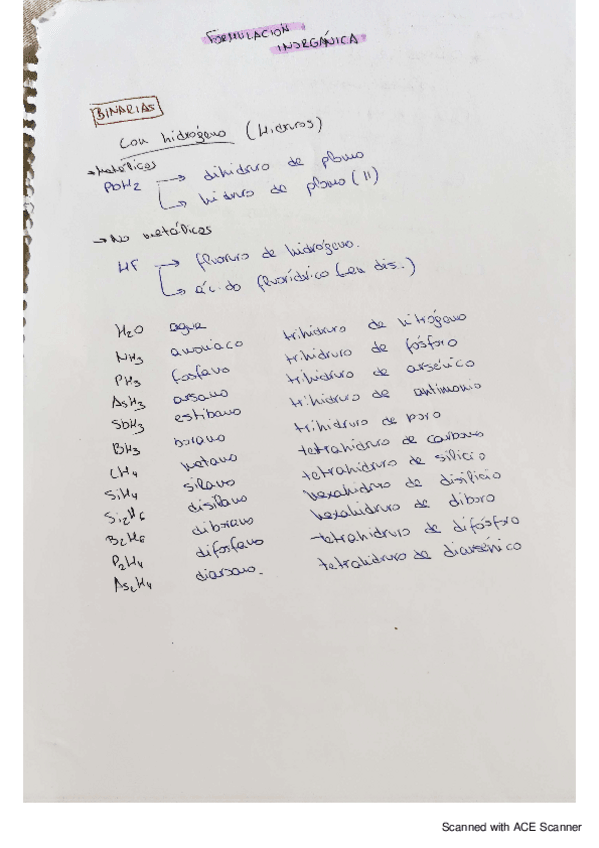 FORMULACION
INORGÁNICA
BINARIAS
Con hidrógeno (Hidruros)
→ Metálicos
PbH2 → dihidruro de plomo
→ hidruro de plomo (II)
→ No metálicos
HF → fluoruro de hidrógeno.
→ ácido fluorídrico (en dis.)
H2O agua
NH3 amoniaco trihidruro de nitrógeno
PH3 fosfano trihidruro de fósforo
AsH3 arsano trihidruro de arsénico
SbH3 estibano trihidruro de antimonio
BH3 borano trihidruro de boro
CH4 metano tetrahidruro de carbono
SiH4 silano tetrahidruro de silicio
Si2H6 disilano hexahidruro de disilicio
B2H6 diborano hexahidruro de diboro
P2H4 difosfano tetrahidruro de difósforo
As2H4 diarsano. tetrahidruro de diarsénico
Scanned with ACE Scanner